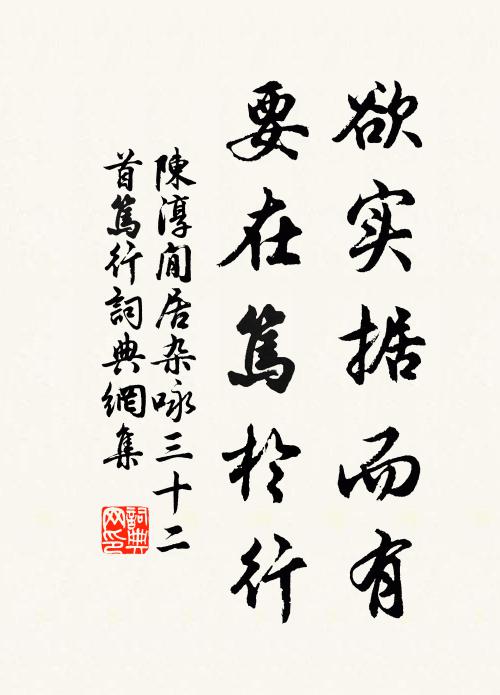 欲实据而有
要在篤於行
陳淳閒居杂咏三十二
首篤行詞典網集
詞典网印